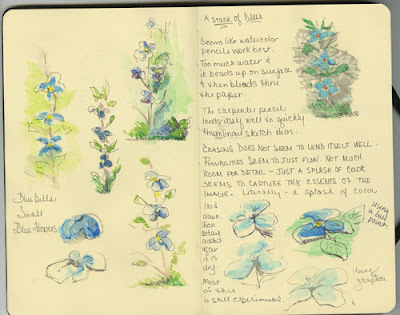 Blue bells
Small
Blue flowers
A stack of blues
Seems like watercolor
pencils work best.
Too much water &
it beads up on surface
& then bleeds thru
the paper.
The carpenter pencil
lends itself well to quickly
thumbnail sketch ideas.
ERASING DOES NOT SEEM TO LEND ITSELF WELL.
POSSIBILITIES SEEM TO JUST FLOW. NOT MUCH
ROOM FOR DETAIL - JUST A SPLASH OF COLOR
SEEMS TO CAPTURE THE ESSENCE OF THE
IMAGE. LITERALLY - A SPLASH OF COLOR
laid
down.
Then
detail
added
after
it is
dry.
Most
of this
is still experimental.
Using
a ball
point
Using
graphite